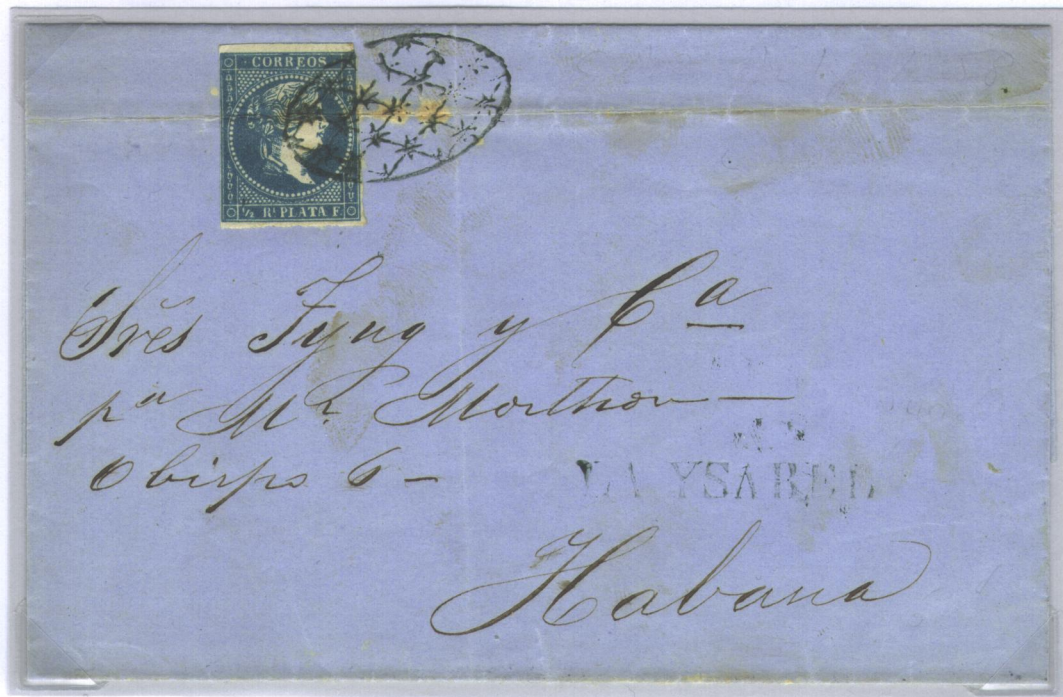 CORREOS
½ Rl PLATA F.
Sres Tyng y Ca
pa Mr Morthon
Obispo 6
LA YSABEL
Habana